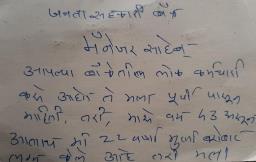 जनता सहकारी बँक
मॅनेजर साहेब
आपल्या बँकेतील लोक कर्मचारी
कसे आहेत ते मला पूर्वी पासून
माहिती, तरी, माझे वय 43 असून
आताच मी 22 वर्षा मुर्जा बरोबर
लग्न केले आहे तरी मला